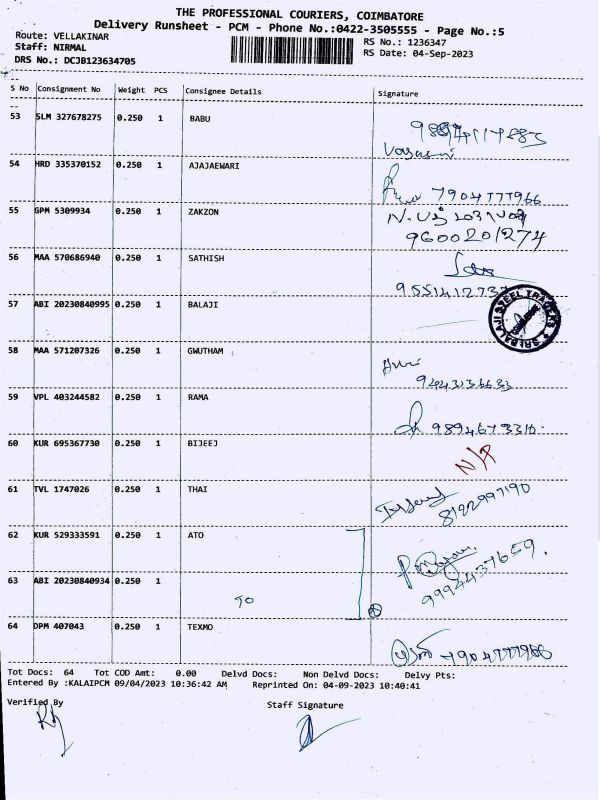 THE PROFESSIONAL COURIERS, COIMBATORE
Delivery Runsheet - PCM - Phone No.:0422-3505555 - Page No.:5
Route: VELLAKINAR
RS No.: 1236347
Staff: NIRMAL
RS Date: 04-Sep-2023
DRS No.: DCJB123634705
S No Consignment No Weight PCS Consignee Details Signature
53 SLM 327678275 0.250 1 BABU
54 HRD 335370152 0.250 1 AJAJAEWARI
7904777966
55 GPM 5309934 0.250 1 ZAKZON
9600201274
56 MAA 570686940 0.250 1 SATHISH
9551412737
57 ABI 20230840995 0.250 1 BALAJI
SRI BALAJI STEEL TRADERS
58 MAA 571207326 0.250 1 GWUTHAM
59 VPL 403244582 0.250 1 RAMA
9894673316
60 KUR 695367730 0.250 1 BIJEEJ
N/A
61 TVL 1747026 0.250 1 THAI
8122997190
62 KUR 529333591 0.250 1 ATO
63 ABI 20230840934 0.250 1
TO
9994437659.
64 DPM 407043 0.250 1 TEXMO
7904777966
Tot Docs: 64 Tot COD Amt: 0.00 Delvd Docs: Non Delvd Docs: Delvy Pts:
Entered By :KALAIPCM 09/04/2023 10:36:42 AM Reprinted On: 04-09-2023 10:40:41
Verified By Staff Signature